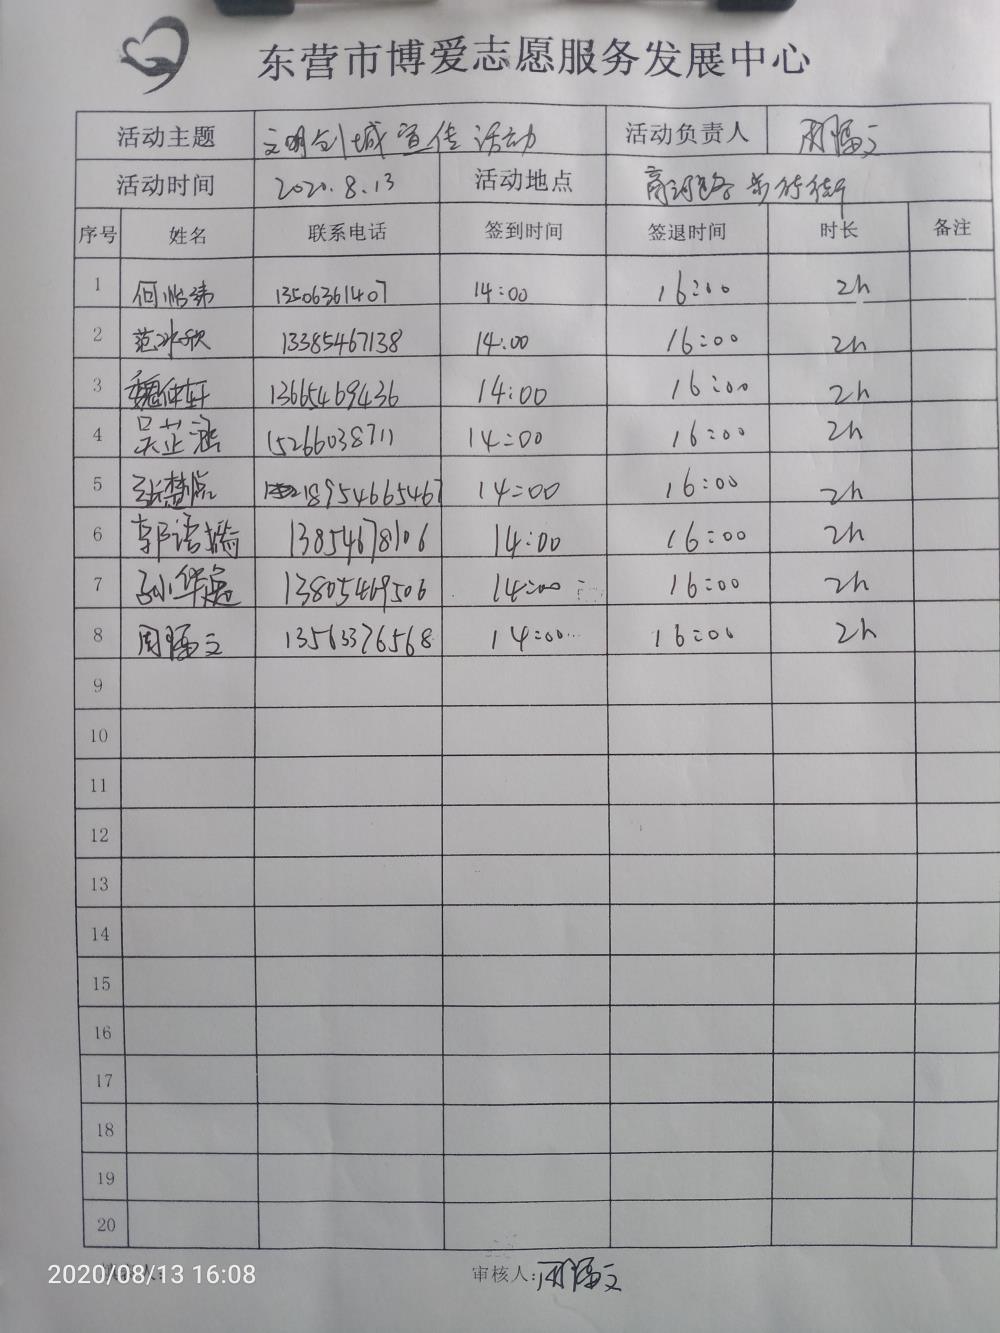 东营市博爱志愿服务发展中心
活动主题 文明创城宣传活动 活动负责人 周
活动时间 2020.8.13 活动地点 步行街
序号 姓名 联系电话 签到时间 签退时间 时长 备注
1 何 13506361407 14:00 16:00 2h
2 范冰欣 13385467138 14:00 16:00 2h
3 魏仲轩 13665469436 14:00 16:00 2h
4 吴芷涵 15266038711 14:00 16:00 2h
5 张楚 18954665467 14:00 16:00 2h
6 郭语 13854678106 14:00 16:00 2h
7 孙华 13805469506 14:00 16:00 2h
8 周 13563376568 14:00 16:00 2h
9
10
11
12
13
14
15
16
17
18
19
20
审核人: 周
2020/08/13 16:08